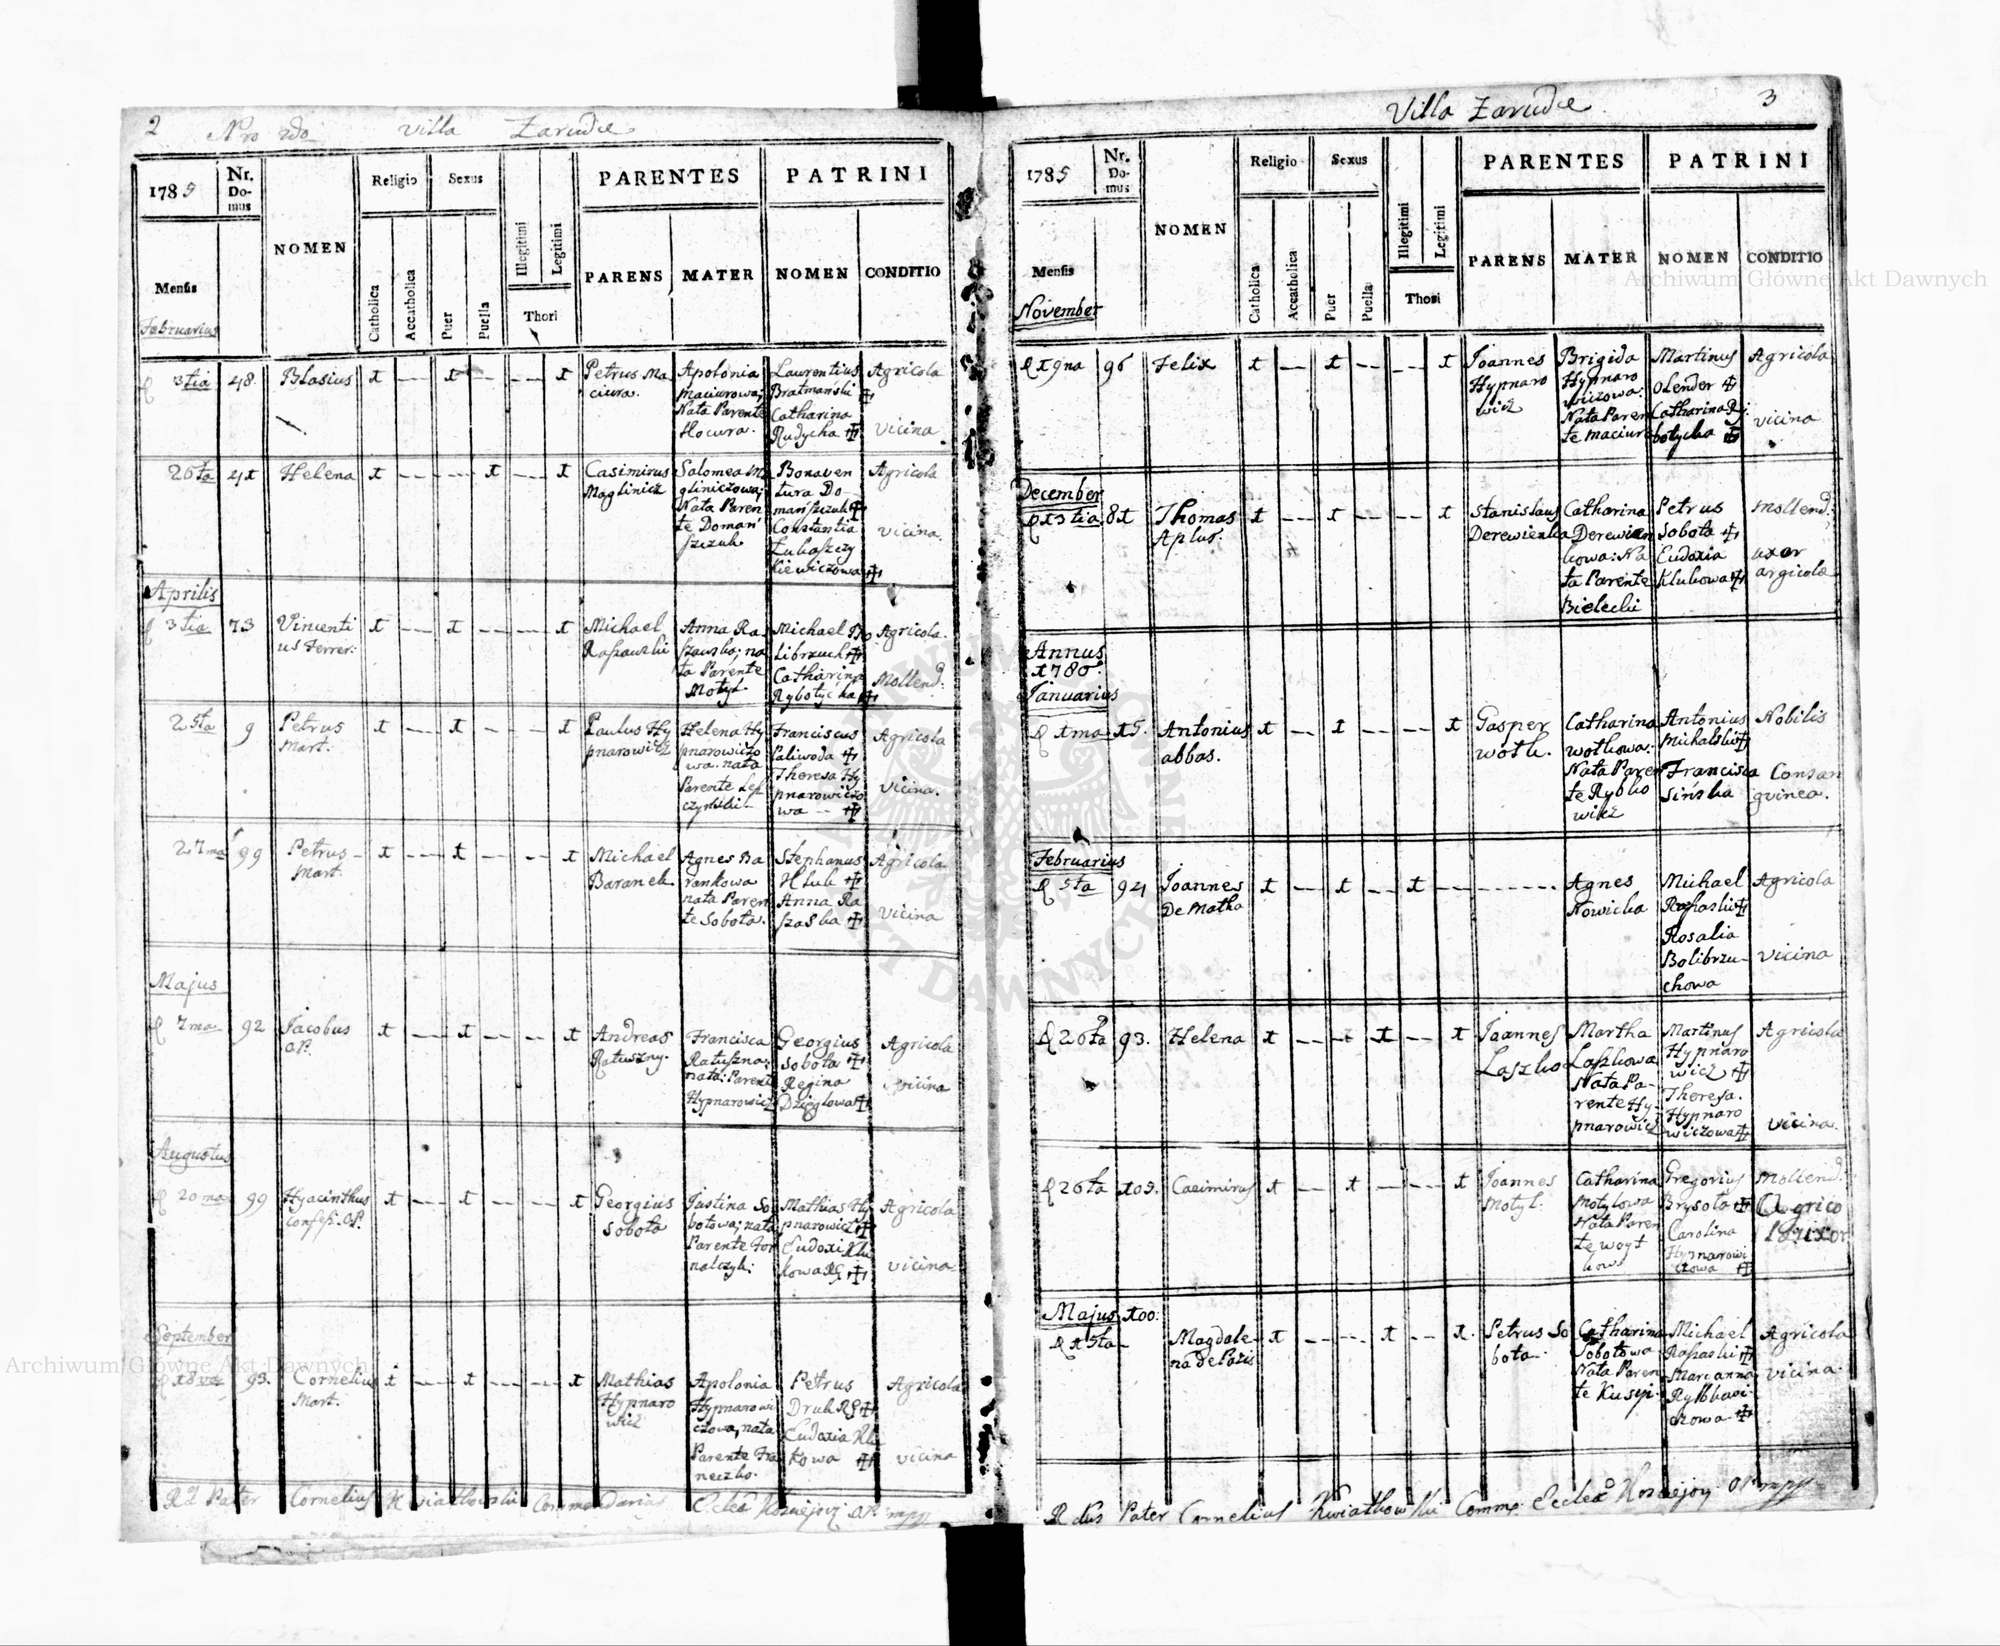 2 Nro 2do Villa Zarudie
1785 Nr. Domus NOMEN Religio Sexus PARENTES PATRINI
Catholica Accatholica Puer Puella Illegitimi Legitimi Thori
Mensis PARENS MATER NOMEN CONDITIO
Februarius
3tia 48. Blasius t -- t -- -- t
Petrus Ma
ciura.
Apolonia
Maciurowa;
Nata Parente
Hocura.
Laurentius
Bratmanski ‡
Catharina
Rudycka ‡
Agricola
vicina
26ta 4t Helena t -- -- t -- t
Casimirus
Maglinicz
Salomea Ma
gliniczowa;
Nata Paren
te Doman
szczuk
Bonaven
tura Do
manszczuk ‡
Constantia
Lukaszczy
kiewiczowa ‡
Agricola
vicina.
Aprilis
3tia 73 Vincenti
us Ferrer: t -- t -- -- t
Michael
Raszawski
Anna Ra
szawska; na
ta Parente
Motyl
Michael Bo
librzuch ‡
Catharina
Rybotycka ‡
Agricola.
Mollend:
25ta 9 Petrus
Mart. t -- t -- -- t
Paulus Hy
pnarowicz
Helena Hy
pnarowiczo
wa. nata
Parente Lesz
czynski
Franciscus
Paliwoda ‡
Theresa Hy
pnarowiczo
wa -- ‡
Agricola
vicina.
27ma 99 Petrus
Mart. t -- t -- -- t
Michael
Baranek
Agnes Ba
rankowa
nata Paren
te Sobota.
Stephanus
Hluk ‡
Anna Ra
szaska ‡
Agricola
vicina
Majus
7ma 92 Jacobus
AP. t -- t -- -- t
Andreas
Ratuszny.
Francisca
Ratuszna:
nata: Parente
Hypnarowicz
Georgius
Sobota ‡
Regina
Dzieglowa ‡
Agricola
vicina
Augustus
20ma 99 Hyacinthus
Confess. OP. t -- t -- -- t
Georgius
Sobota
Justina So
botowa; nata
Parente For
nalczyk:
Mathias Hy
pnarowicz ‡
Eudoxi Klu
kowa RG ‡
Agricola
vicina
September
18va 93. Cornelius
Mart. t -- t -- -- t
Mathias
Hypnaro
wicz
Apolonia
Hypnarowi
czowa, nata
Parente Fra
neczko.
Petrus
Druk RG ‡
Eudoxia Klu
kowa ‡
Agricola
vicina
Rd Pater Cornelius Kwiatkowski Commendarius Eccleae OP mpp
Villa Zarudie 3
1785 Nr. Domus NOMEN Religio Sexus PARENTES PATRINI
Catholica Accatholica Puer Puella Illegitimi Legitimi Thori
Mensis PARENS MATER NOMEN CONDITIO
November
t9na 96 Felix t -- t -- -- t
Joannes
Hypnaro
wicz
Brigida
Hypnaro
wiczowa.
Nata Paren
te Maciura
Martinus
Olender ‡
Catharina Ry
botycka ‡
Agricola
vicina
December
t3tia 8t Thomas
Aplus. t -- t -- -- t
Stanislaus
Derewienka
Catharina
Derewien
kowa: Na
ta Parente
Bielecki
Petrus
Sobota ‡
Eudoxia
Klukowa ‡
Mollend:
uxor
argicolæ
Annus
1786.
Januarius
tma t5. Antonius
abbas. t -- t -- -- t
Gasper
Wotk.
Catharina
Wotkowa:
Nata Paren
te Rybko
wicz
Antonius
Michalski ‡
Francisca
Sinska
Nobilis
Consan
gvinea.
Februarius
5ta 94 Joannes
De Matha t -- t -- t -----
Agnes
Nowicka
Michael
Raszaski ‡
Rosalia
Bolibrzu-
chowa
Agricola
vicina
26ta 93. Helena t -- t t -- t
Joannes
Laszko
Martha
Laszkowa
Nata Pa-
rente Hy-
pnarowicz
Martinus
Hypnaro
wicz ‡
Theresa.
Hypnaro
wiczowa ‡
Agricola
vicina.
26ta t03. Casimirus t -- t -- -- t
Joannes
Motyl:
Catharina
Motylowa
Nata Paren
te Woyt
kow
Gregorius
Brysota ‡
Carolina
Hypnarowi
czowa ‡
Mollend:
Agrico
læ uxor
Majus t00.
t5ta Magdale-
na de Pazis t -- -- t -- t.
Petrus So
bota.
Catharina
Sobotowa
Nata Paren
te Kusyi.
Michael
Raszaski ‡
Marianna
Rybkowi-
czowa ‡
Agricola
vicina.
Rdus Pater Cornelius Kwiatkowski Comme Eccleae OP mpp
Archiwum Główne Akt Dawnych
Archiwum Główne Akt Dawnych